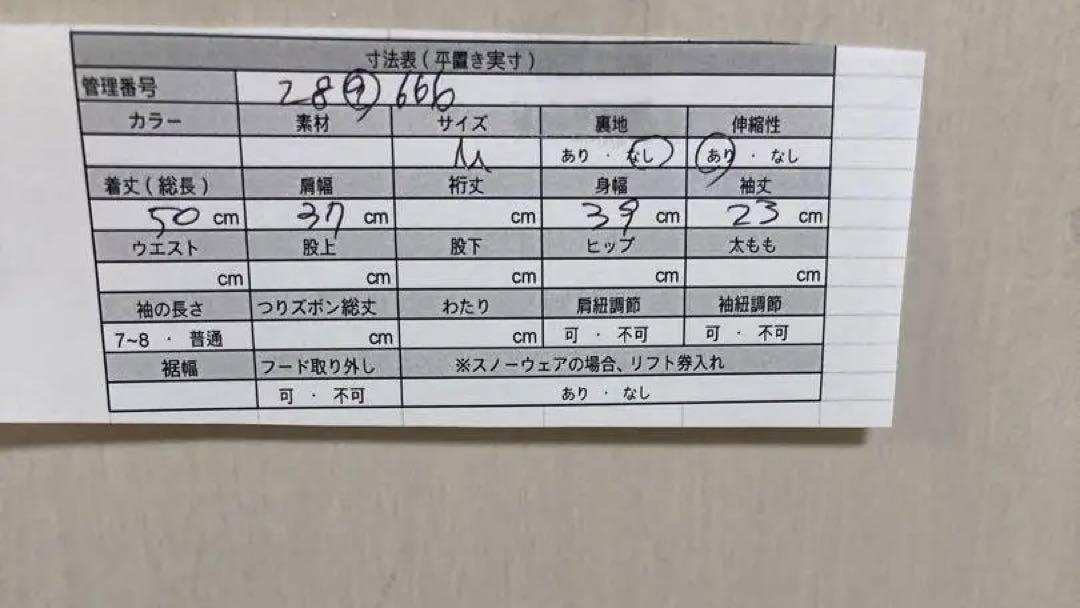 寸法表（平置き実寸）
管理番号 28⑨666
カラー 素材 サイズ 裏地 伸縮性
M あり ・ なし あり ・ なし
着丈（総長） 肩幅 裄丈 身幅 袖丈
50 cm 37 cm cm 39 cm 23 cm
ウエスト 股上 股下 ヒップ 太もも
cm cm cm cm cm
袖の長さ つりズボン総丈 わたり 肩紐調節 袖紐調節
7~8 ・ 普通 cm cm 可 ・ 不可 可 ・ 不可
裾幅 フード取り外し ※スノーウェアの場合、リフト券入れ
可 ・ 不可 あり ・ なし